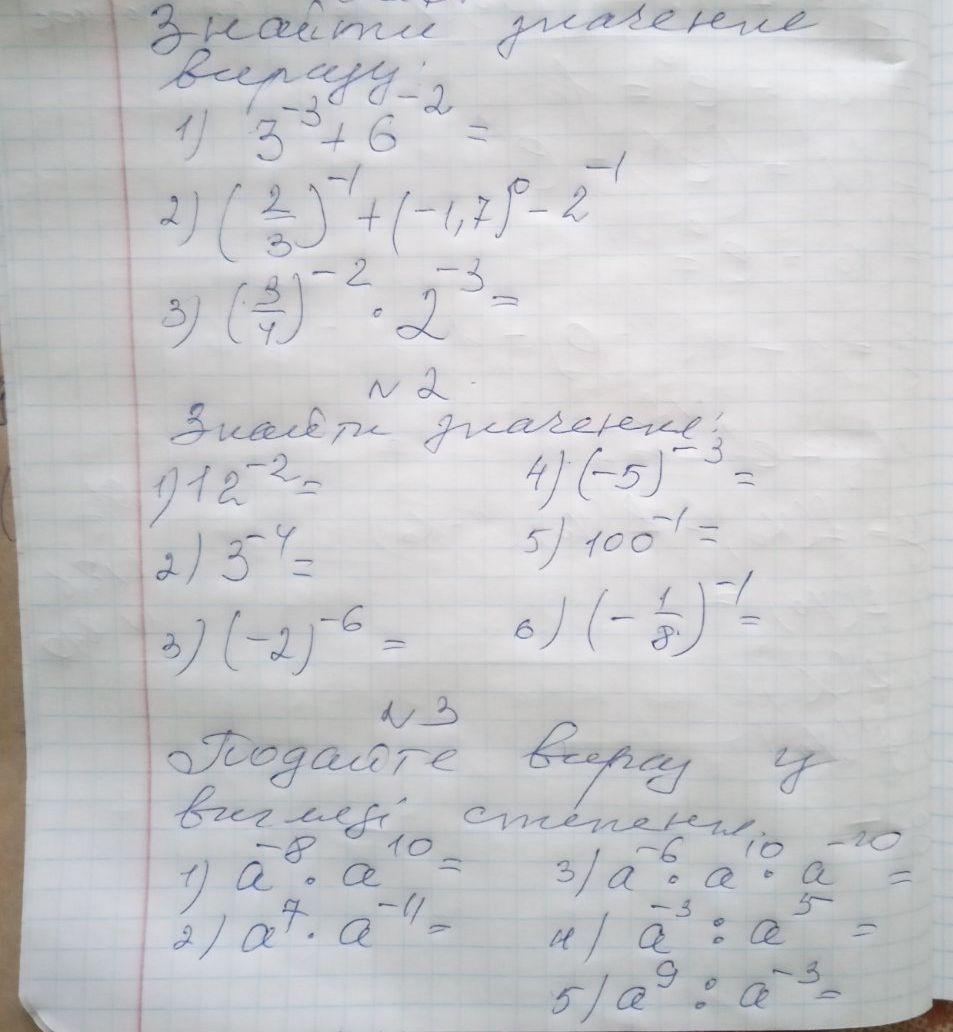 Знайти значення
виразу:
1) 3⁻³ + 6⁻² =
2) (2/3)⁻¹ + (-1,7)⁰ - 2⁻¹
3) (3/4)⁻² · 2⁻³ =
N2
Знайти значення:
1) 12⁻² =
4) (-5)⁻³ =
2) 3⁻⁴ =
5) 100⁻¹ =
3) (-2)⁻⁶ =
6) (-1/8)⁻¹ =
N3
Подайте вираз у
вигляді степеня.
1) a⁻⁸ · a¹⁰ =
3) a⁻⁶ · a¹⁰ · a⁻²⁰ =
2) a⁷ · a⁻¹¹ =
4) a⁻³ : a⁵ =
5) a⁹ : a⁻³ =